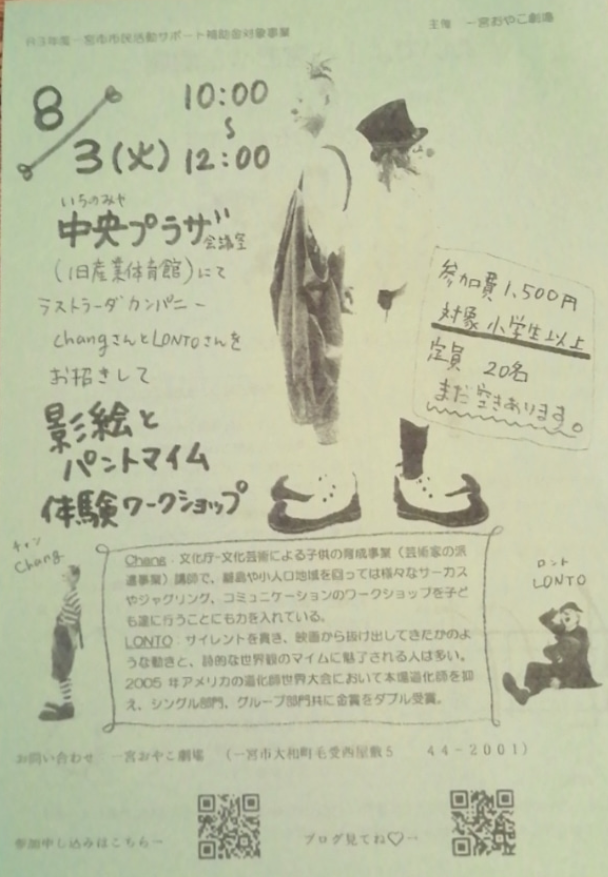 R3年度一宮市市民活動サポート補助金対象事業
主催 一宮おやこ劇場
8/3(火)
10:00
〜
12:00
いちのみや
中央プラザ会議室
(旧産業体育館)にて
ラストラーダカンパニー
changさんとLONTOさんを
お招きして
影絵と
パントマイム
体験ワークショップ
参加費1,500円
対象 小学生以上
定員 20名
まだ空きあります。
チャン
Chang
Chang:文化庁-文化芸術による子供の育成事業(芸術家の派
遣事業)講師で、離島や小人口地域を回っては様々なサーカス
やジャグリング、コミュニケーションのワークショップを子ど
も達に行うことにも力を入れている。
LONTO:サイレントを貫き、映画から抜け出してきたかのよ
うな動きと、詩的な世界観のマイムに魅了される人は多い。
2005年アメリカの道化師世界大会において本場道化師を抑
え、シングル部門、グループ部門共に金賞をダブル受賞。
ロント
LONTO
お問い合わせ 一宮おやこ劇場 (一宮市大和町毛受西屋敷5 44-2001)
参加申し込みはこちら→
ブログ見てね♡→